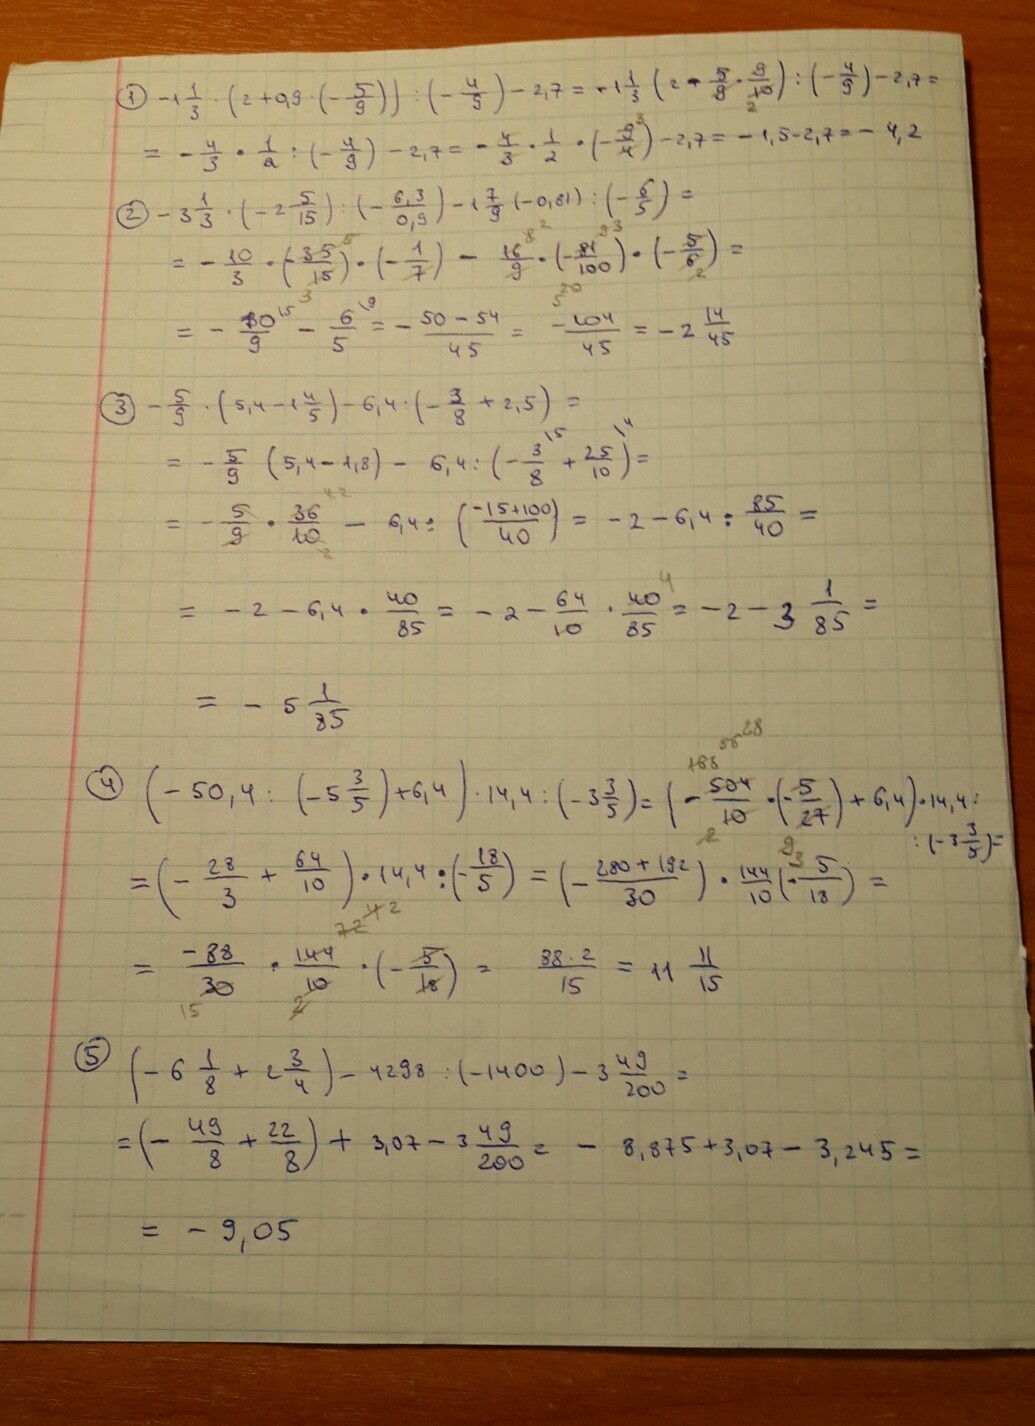 ① -1 1/3 · (2+0,9 · (- 5/9)) : (- 4/9) - 2,7 = -1 1/3 (2 - 5/9 · 9/10) : (- 4/9) - 2,7 =
= - 4/3 · 1/2 : (- 4/9) - 2,7 = - 4/3 · 1/2 · (- 9/4) - 2,7 = - 1,5 - 2,7 = - 4,2
② -3 1/3 · (-2 5/15) : (- 6,3/0,9) - 1 7/9 (-0,81) : (- 6/5) =
= - 10/3 · (- 35/15) · (- 1/7) - 16/9 · (- 81/100) · (- 5/6) =
= - 10/9 - 6/5 = - 50-54/45 = - 104/45 = -2 14/45
③ - 5/9 · (5,4 - 1 4/5) - 6,4 : (- 3/8 + 2,5) =
= - 5/9 (5,4 - 1,8) - 6,4 : (- 3/8 + 25/10) =
= - 5/9 · 36/10 - 6,4 : (-15+100/40) = -2 - 6,4 : 85/40 =
= -2 - 6,4 · 40/85 = -2 - 64/10 · 40/85 = -2 - 3 1/85 =
= - 5 1/85
④ (- 50,4 : (-5 3/5) + 6,4) · 14,4 : (-3 3/5) = (- 504/10 · (- 5/27) + 6,4) · 14,4 :
: (-3 3/5) =
= (- 28/3 + 64/10) · 14,4 : (- 18/5) = (- 280+192/30) · 144/10 (- 5/18) =
= -88/30 · 144/10 · (- 5/18) = 88·2/15 = 11 11/15
⑤ (- 6 1/8 + 2 3/4) - 4298 : (-1400) - 3 49/200 =
= (- 49/8 + 22/8) + 3,07 - 3 49/200 = - 8,875 + 3,07 - 3,245 =
= - 9,05